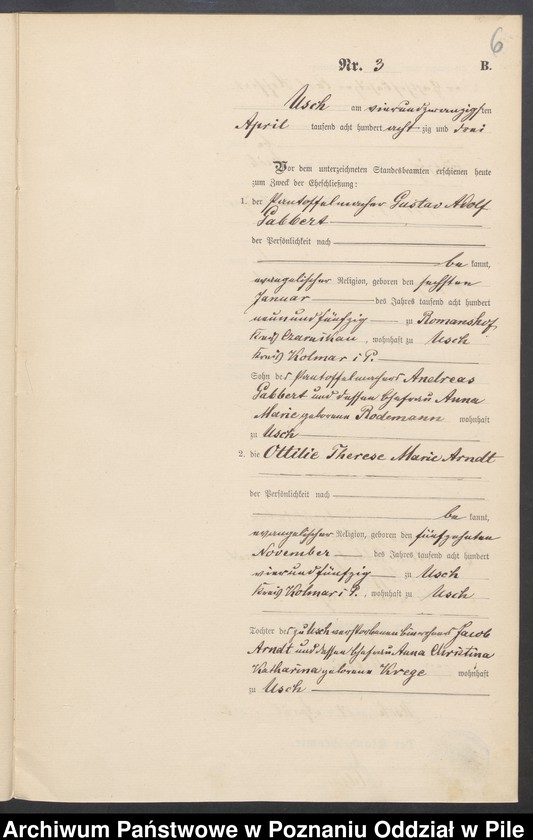 6
Nr. 3 B.
Usch am vierundzwanzigsten
April tausend acht hundert achtzig und drei
Vor dem unterzeichneten Standesbeamten erschienen heute
zum Zweck der Eheschließung:
1. der Pantoffelmacher Gustav Adolf
Gabbert
der Persönlichkeit nach
be kannt,
evangelischer Religion, geboren den sechsten
Januar des Jahres tausend acht hundert
neunundfünfzig zu Romanshof
Kreis Czarnikau, wohnhaft zu Usch
Kreis Kolmar i. P.
Sohn des Pantoffelmachers Andreas
Gabbert und dessen Ehefrau Anna
Marie geborene Rodemann wohnhaft
zu Usch
2. die Ottilie Therese Marie Arndt
der Persönlichkeit nach
be kannt,
evangelischer Religion, geboren den fünfzehnten
November des Jahres tausend acht hundert
vierundfünfzig zu Usch
Kreis Kolmar i. P., wohnhaft zu Usch
Tochter des zu Usch verstorbenen Jacob
Arndt und dessen Ehefrau Anna Christina
Katharina geborene Krege wohnhaft
zu Usch
Archiwum Państwowe w Poznaniu Oddział w Pile